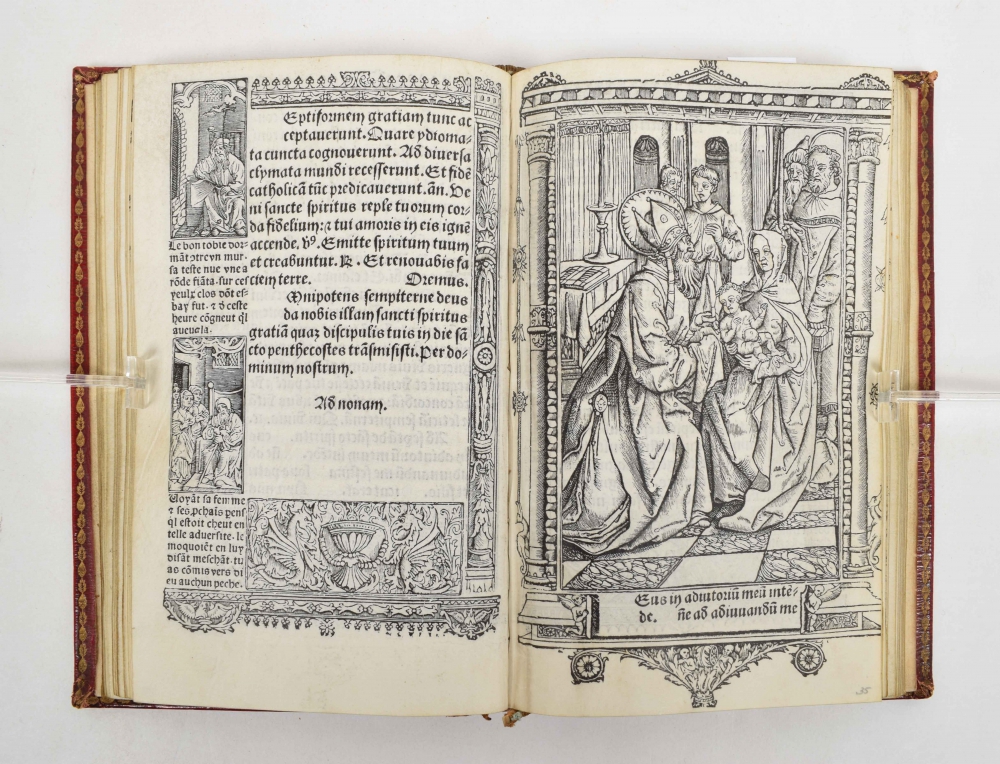 Eptiformem gratiam tunc ac
ceptauerunt. Quare ydioma-
ta cuncta cognouerunt. Ad diuersa
clymata mundi recesserunt. Et fidē
catholicā tūc predicauerunt. añ. Ve
ni sancte spiritus reple tuorum cor
da fidelium: ⁊ tui amoris in eis ignē
accende. v̊. Emitte spiritum tuum
et creabuntur. ℟. Et renouabis fa
ciem terre. Oremus.
Mnipotens sempiterne deus
da nobis illam sancti spiritus
gratiā quaȝ discipulis tuis in die sā
cto penthecostes trāsmisisti. Per do-
minum nostrum.
Ad nonam.
Le bon tobie dor-
māt ↄtreyn mur.
sa teste nue vne a
rōde fiāta. sur ces
yeulx clos dōt es-
bay fut. ⁊ d ceste
heure cōgneut ql
aueugla.
Voyāt sa femme
⁊ ses ꝓchaīs pens
ql estoit cheut en
telle aduersite. le
moquoiēt en luy
disāt meschāt. tu
as cōmis vers di
eu auchun peche.
Eus in adiutoriū meū intē-
de. ñe ad adiuuandū me
35